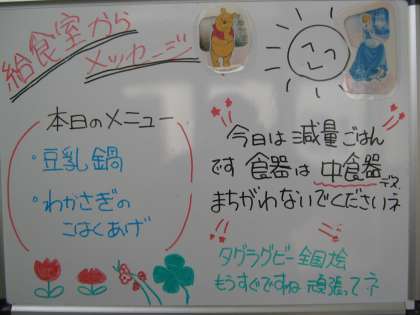 給食室から
メッセージ
本日のメニュー
・豆乳鍋
・わかさぎの
こはくあげ
今日は減量ごはん
です 食器は 中食器
です。
まちがわないでくださいネ
タグラグビー全国大会
もうすぐですね 頑張ってネ